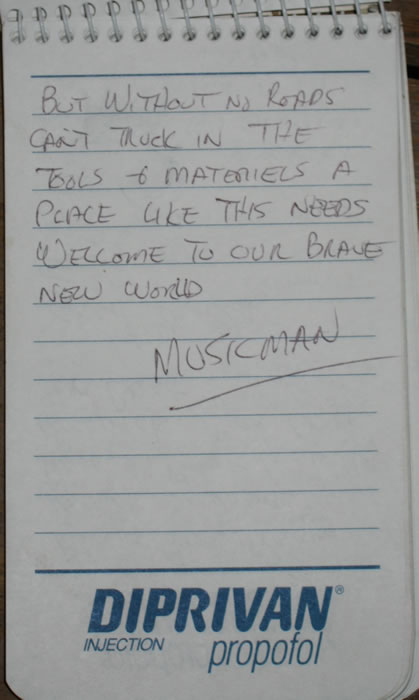 BUT WITHOUT NO ROADS
CAN'T TRUCK IN THE
TOOLS & MATERIELS A
PLACE LIKE THIS NEEDS
WELCOME TO OUR BRAVE
NEW WORLD
MUSICMAN
DIPRIVAN®
INJECTION propofol